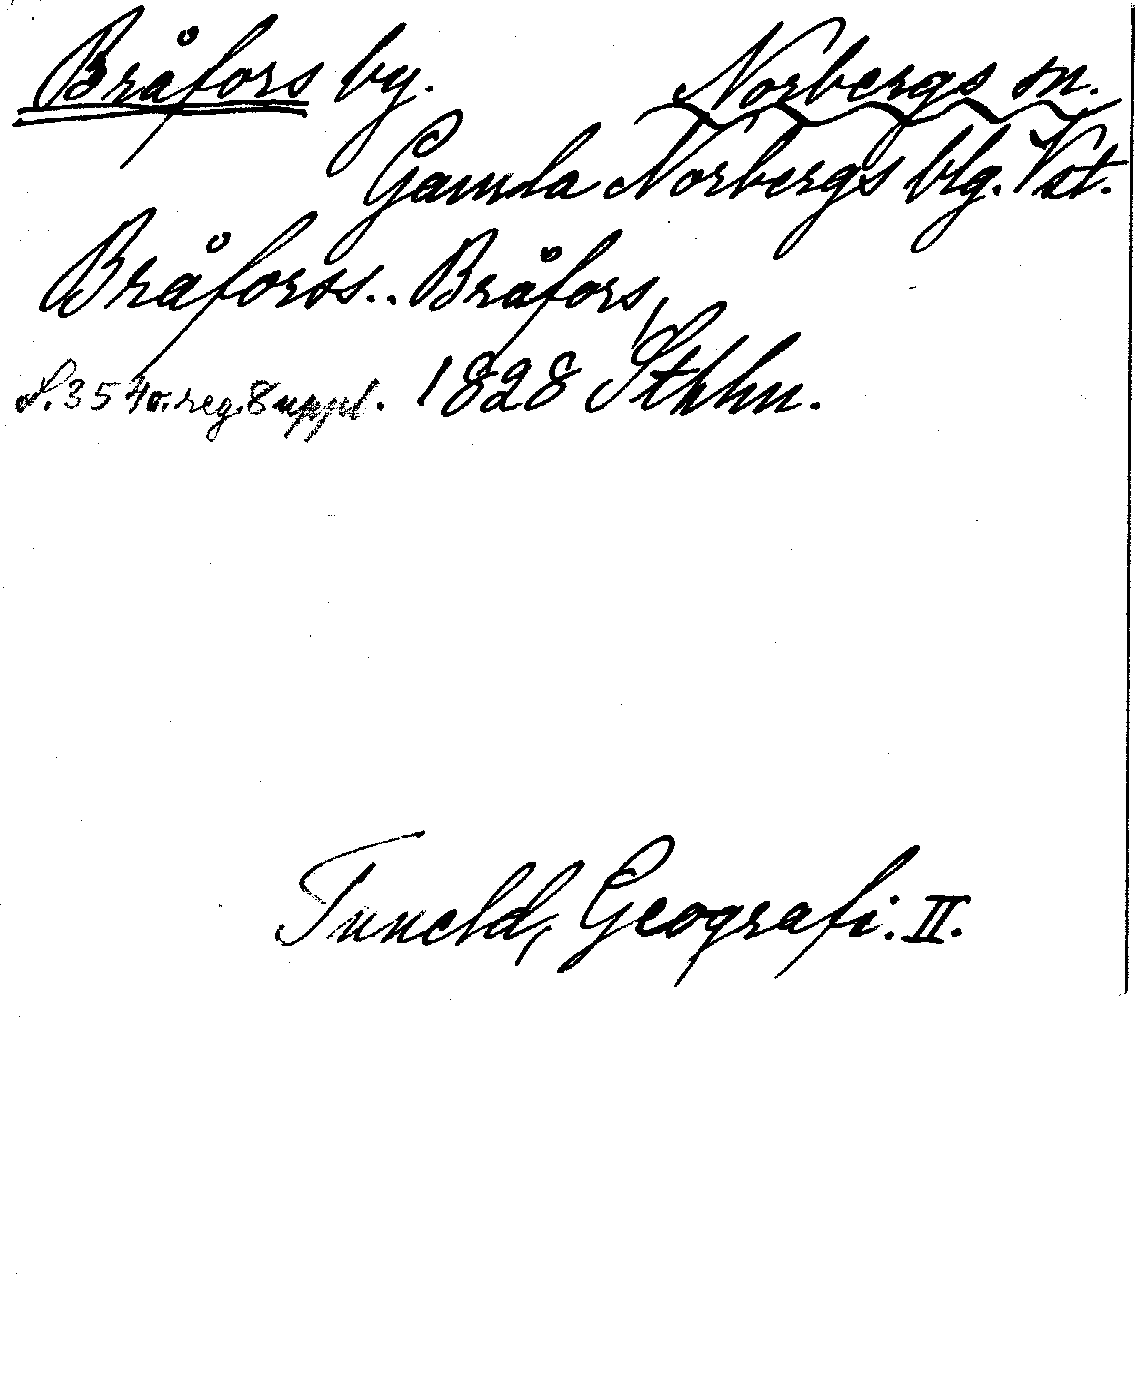 Bråfors by. Norbergs sn.
Gamla Norbergs blg. Vst.
Bråforss.. Bråfors,
S. 354 o. reg. 8 uppl. 1828 Sthlm.
Tuneld, Geografi. II.